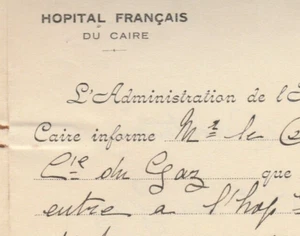 HOPITAL FRANÇAIS
DU CAIRE
L'Administration de l'
Caire informe Mr le
Cie du Gaz que
entre a l'hop